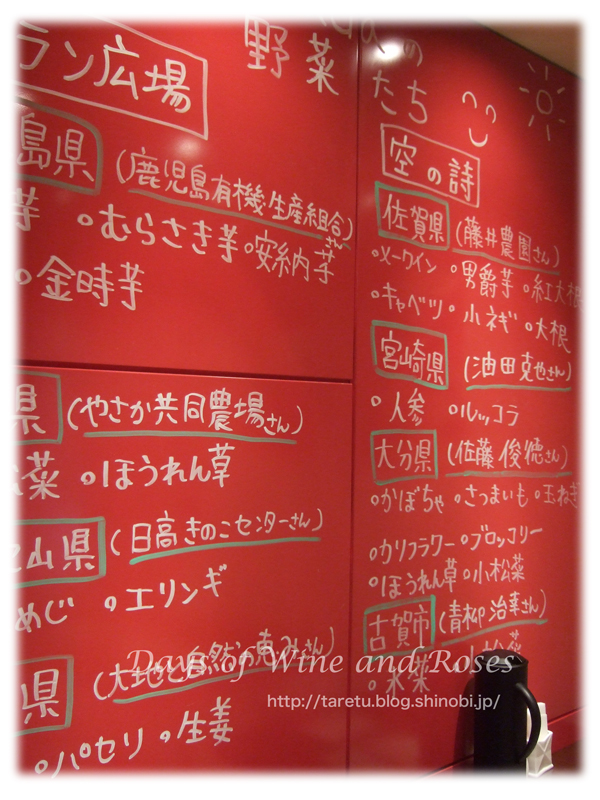 ラン広場
野菜
の
たち
島県 (鹿児島有機生産組合)
芋 ○むらさき芋 ○安納芋
○金時芋
県 (やさか共同農場さん)
菜 ○ほうれん草
山県 (日高きのこセンターさん)
めじ ○エリンギ
県 (大地と自然の恵みさん)
○パセリ ○生姜
空の詩
佐賀県 (藤井農園さん)
○メークイン ○男爵芋 ○紅大根
○キャベツ ○小ネギ ○大根
宮崎県 (油田克也さん)
○人参 ○ルッコラ
大分県 (佐藤俊徳さん)
○かぼちゃ ○さつまいも ○玉ねぎ
○カリフラワー ○ブロッコリー
○ほうれん草 ○小松菜
古賀市 (青柳治幸さん)
小松菜
○水菜
Days of Wine and Roses
http://taretu.blog.shinobi.jp/